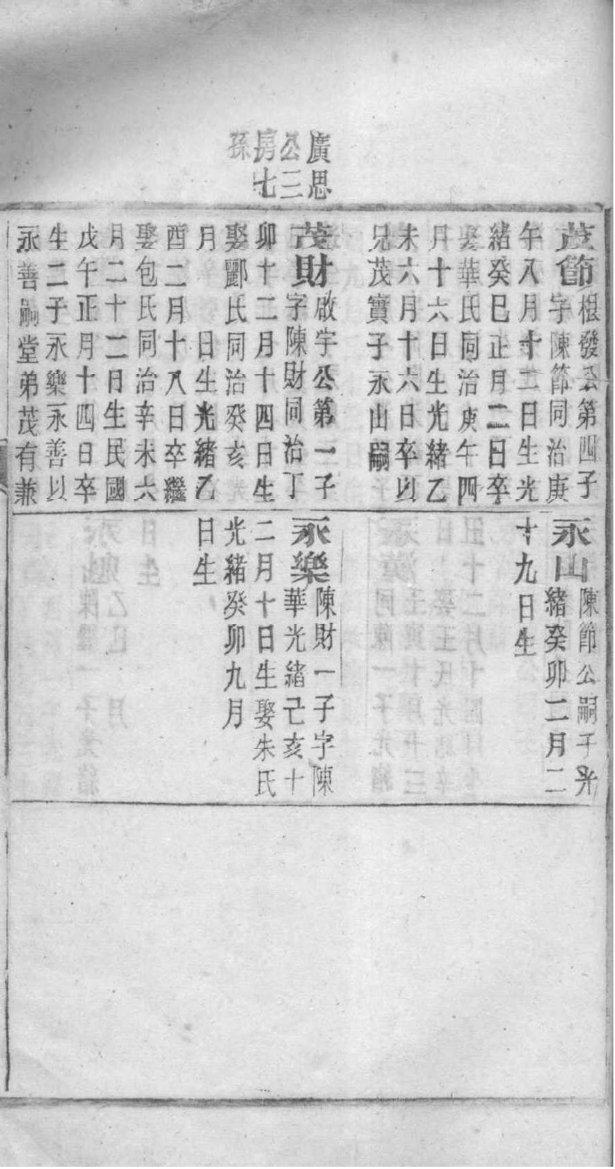 廣思
公三
房七
孫
茂節根發公第四子
字陳節同治庚
午年八月十二日生光
緒癸巳正月二日卒
娶華氏同治庚午四
月十六日生光緒乙
未六月十六日卒以
兄茂寶子永山嗣
茂財啟宇公第一子
字陳財同治丁
卯十二月十四日生
娶酈氏同治癸亥
月 日生光緒乙
酉二月十八日卒繼
娶包氏同治辛未六
月二十二日生民國
戊午正月十四日卒
生二子永樂永善以
永善嗣堂弟茂有兼
永山陳節公嗣子光
緒癸卯二月二
十九日生
永樂陳財一子字陳
華光緒己亥十
二月十日生娶朱氏
光緒癸卯九月
日生